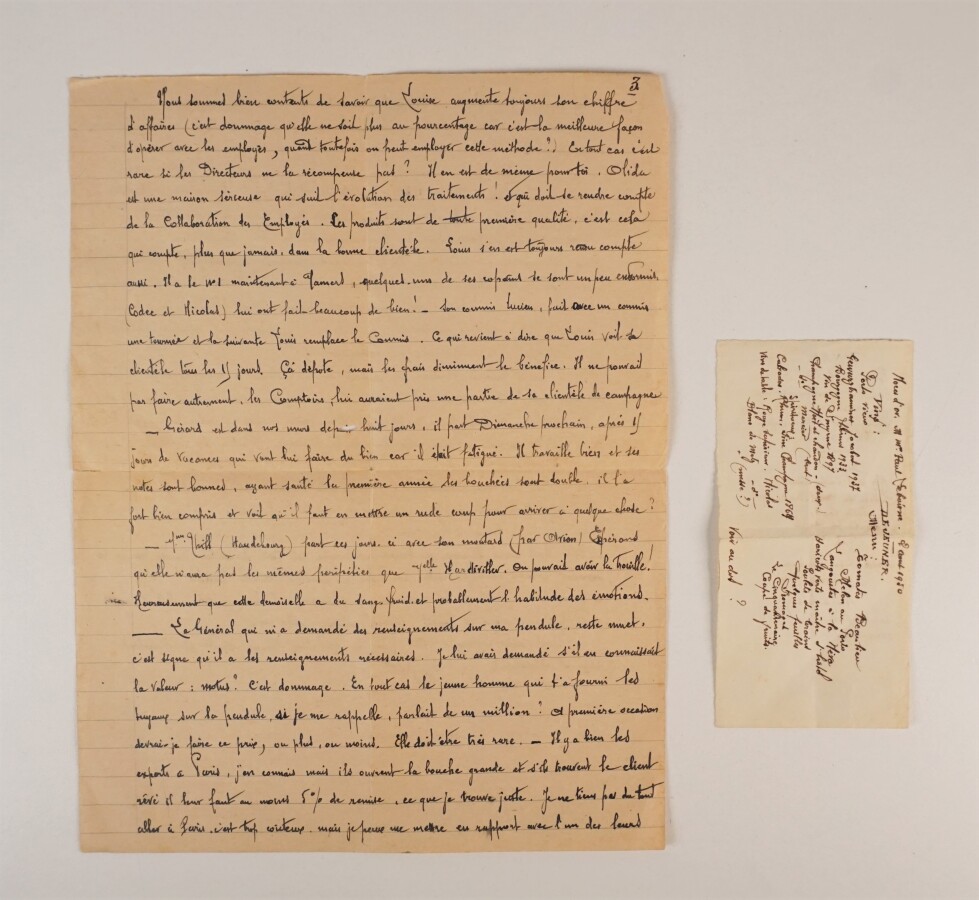 3
Nous sommes bien contents de savoir que Louise augmente toujours son chiffre
d'affaires (c'est dommage qu'elle ne soit plus au pourcentage car c'est la meilleure façon
d'opérer avec les employés, quand toutefois on peut employer cette méthode?) En tout cas c'est
rare si les Directeurs ne la récompense pas? Il en est de même pour toi. Olida
est une maison sérieuse qui suit l'évolution des traitements! et qui doit se rendre compte
de la Collaboration des Employés. Les produits sont de toute première qualité, c'est cela
qui compte, plus que jamais, dans la bonne clientèle. Louis s'en est toujours rendu compte
aussi. Il a le n°1 maintenant à Mamers, quelques uns de ses copains se sont un peu endormis,
(Codec et Nicolas) lui ont fait beaucoup de bien! - Son commis Lucien, fait avec un commis
une tournée et la suivante Louis remplace le Commis. Ce qui revient à dire que Louis voit sa
clientèle tous les 15 jours. Ça dépote, mais les frais diminuent le bénéfice. Il ne pouvait
pas faire autrement, les Comptoirs, lui auraient pris une partie de sa clientèle de campagne
- Gérard est dans nos murs depuis huit jours, il part Dimanche prochain, après 15
jours de vacances qui vont lui faire du bien car il était fatigué. Il travaille bien et ses
notes sont bonnes, ayant sauté la première année les bouchées sont double, il l'a
fort bien compris et voit qu'il faut en mettre un rude coup pour arriver à quelque chose?
- Mme (Hambourg) part ces jours ci avec son moutard (par Avion) Espérons
qu'elle n'aura pas les mêmes péripéties que Melle. On pouvait avoir la trouille!
Heureusement que cette demoiselle a du sang froid et probablement l'habitude des émotions.
- Le Général qui m'a demandé des renseignements sur ma pendule, reste muet,
c'est signe qu'il a les renseignements nécessaires. Je lui avais demandé s'il en connaissait
la valeur: motus? C'est dommage. En tout cas le jeune homme qui t'a fourni les
tuyaux sur la pendule, si je me rappelle, parlait de un million? A première occasion
devrai-je faire ce prix, ou plus, ou moins. Elle doit être très rare. - Il y a bien les
experts à Paris, j'en connais mais ils ouvrent la bouche grande et s'ils trouvent le client
rêvé il leur faut au moins 5% de remise, ce que je trouve juste. Je ne tiens pas du tout
aller à Paris, c'est trop coûteux mais je peux me mettre en rapport avec l'un des leurs
Noces d'or, M Mme Paul - 2 avril 1950
DEJEUNER
Menu:
Melon au Porto
Langouste à la
Haricots verts maître d'hôtel
Quelques feuilles
Fromages
Le Cinquantenaire
Coupe de fruits
Vins:
Porto vieux
Gewurztraminer 1937
Bourgogne 1933
Champagne Moet et chandon
Calvados, Rhum, fine Champagne 1869
Vins de table: Rouge Supérieur. Nicolas
Blanc de
Voir au dos! ?